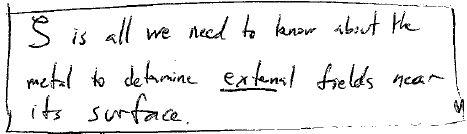 S is all we need to know about the
metal to determine external fields near
its surface.